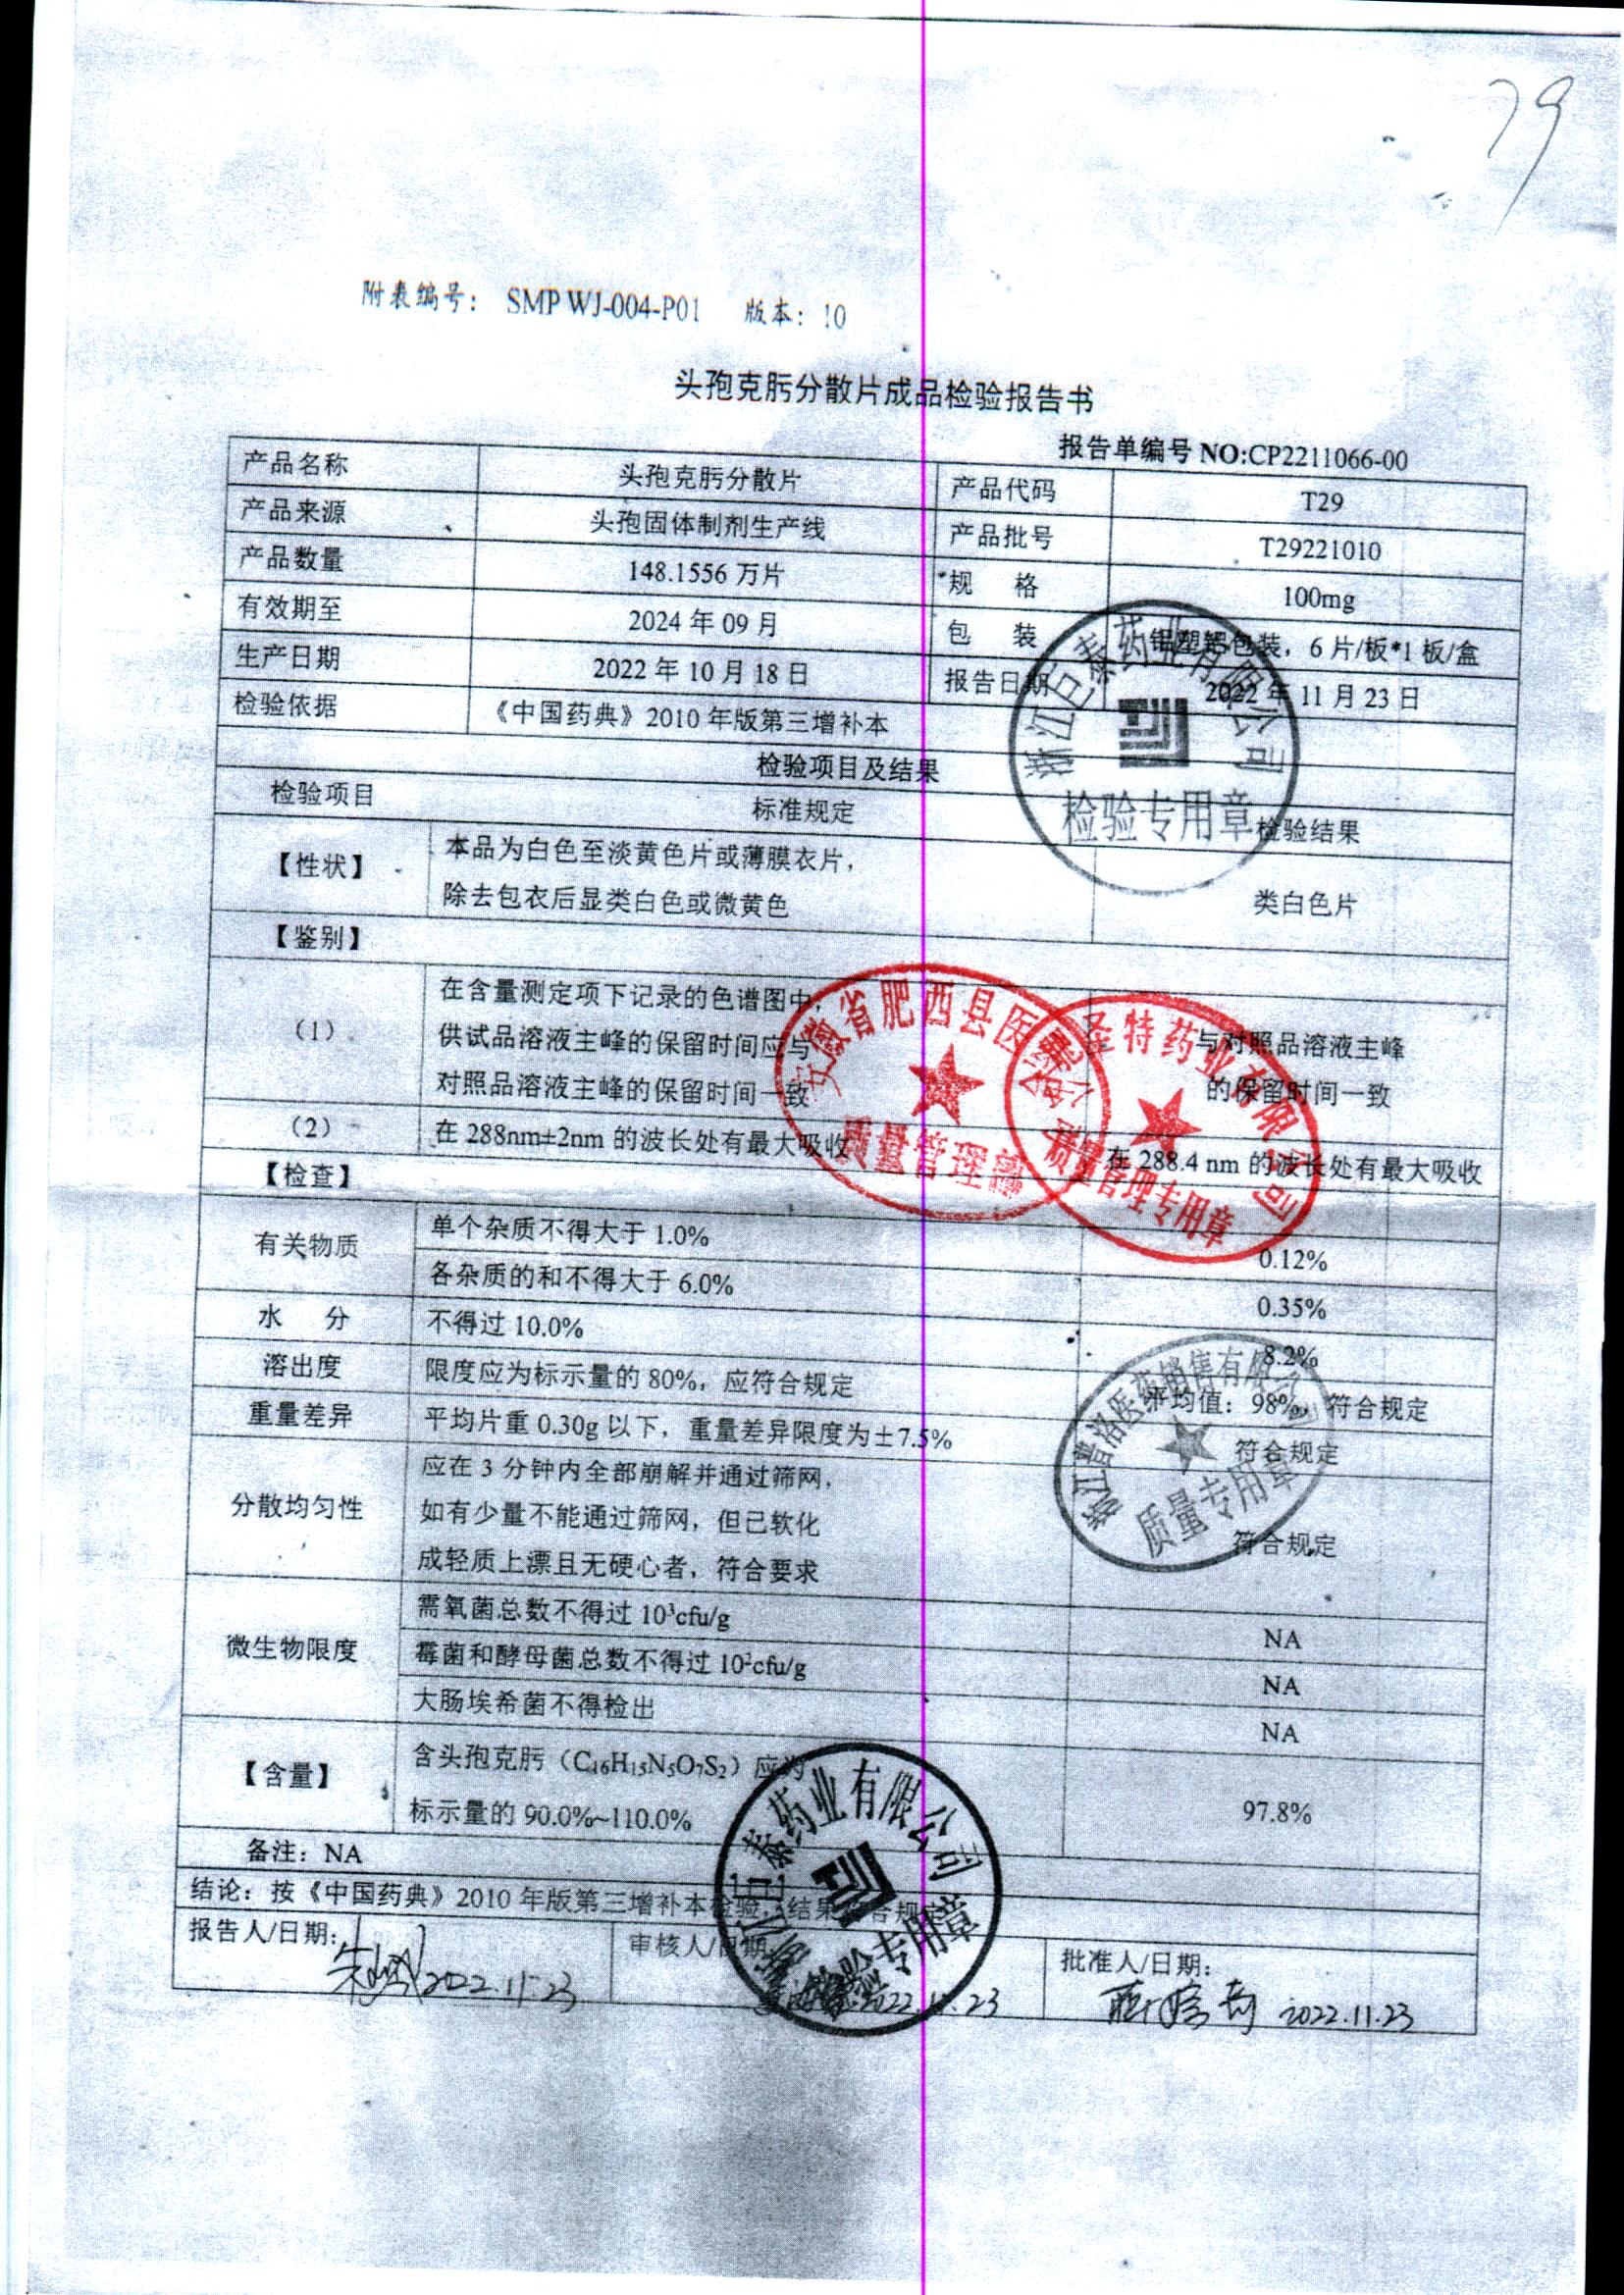 79
附表编号： SMP WJ-004-P01 版本：10
头孢克肟分散片成品检验报告书
报告单编号 NO:CP2211066-00
产品名称 头孢克肟分散片 产品代码 T29
产品来源 头孢固体制剂生产线 产品批号 T29221010
产品数量 148.1556 万片 规 格 100mg
有效期至 2024 年 09 月 包 装 铝塑铝包装，6 片/板*1 板/盒
生产日期 2022 年 10 月 18 日 报告日期 2022 年 11 月 23 日
检验依据 《中国药典》2010 年版第三增补本
检验项目及结果
检验项目 标准规定 检验结果
【性状】 本品为白色至淡黄色片或薄膜衣片，
除去包衣后显类白色或微黄色 类白色片
【鉴别】
（1） 在含量测定项下记录的色谱图中，
供试品溶液主峰的保留时间应与
对照品溶液主峰的保留时间一致
与对照品溶液主峰
的保留时间一致
（2） 在 288nm±2nm 的波长处有最大吸收 在 288.4 nm 的波长处有最大吸收
【检查】
有关物质 单个杂质不得大于 1.0% 0.12%
各杂质的和不得大于 6.0% 0.35%
水 分 不得过 10.0% 8.2%
溶出度 限度应为标示量的 80%，应符合规定 平均值：98%，符合规定
重量差异 平均片重 0.30g 以下，重量差异限度为±7.5% 符合规定
分散均匀性 应在 3 分钟内全部崩解并通过筛网，
如有少量不能通过筛网，但已软化
成轻质上漂且无硬心者，符合要求 符合规定
微生物限度 需氧菌总数不得过 10³cfu/g NA
霉菌和酵母菌总数不得过 10²cfu/g NA
大肠埃希菌不得检出 NA
【含量】 含头孢克肟（C₁₆H₁₅N₅O₇S₂）应为
标示量的 90.0%~110.0% 97.8%
备注：NA
结论：按《中国药典》2010 年版第三增补本检验，结果符合规定
报告人/日期： 2022.11.23 审核人/日期： 2022.11.23 批准人/日期： 2022.11.23
浙江巨泰药业有限公司
检验专用章
安徽省肥西县医药公司
质量管理
圣特药业有限公司
质量管理专用章
浙江普洛医药销售有限公司
质量专用章
浙江巨泰药业有限公司
检验专用章